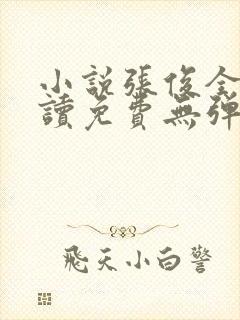 小說張俊全
讀免費無彈
飛天小白警